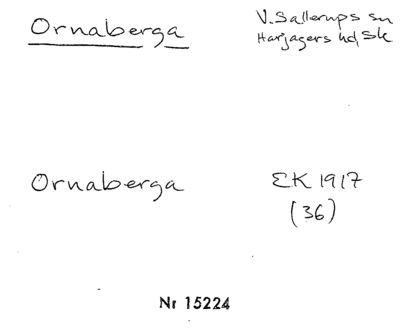 Ornaberga
V. Sallerups sn
Harjagers hd, Sk
Ornaberga
EK 1917
(36)
Nr 15224